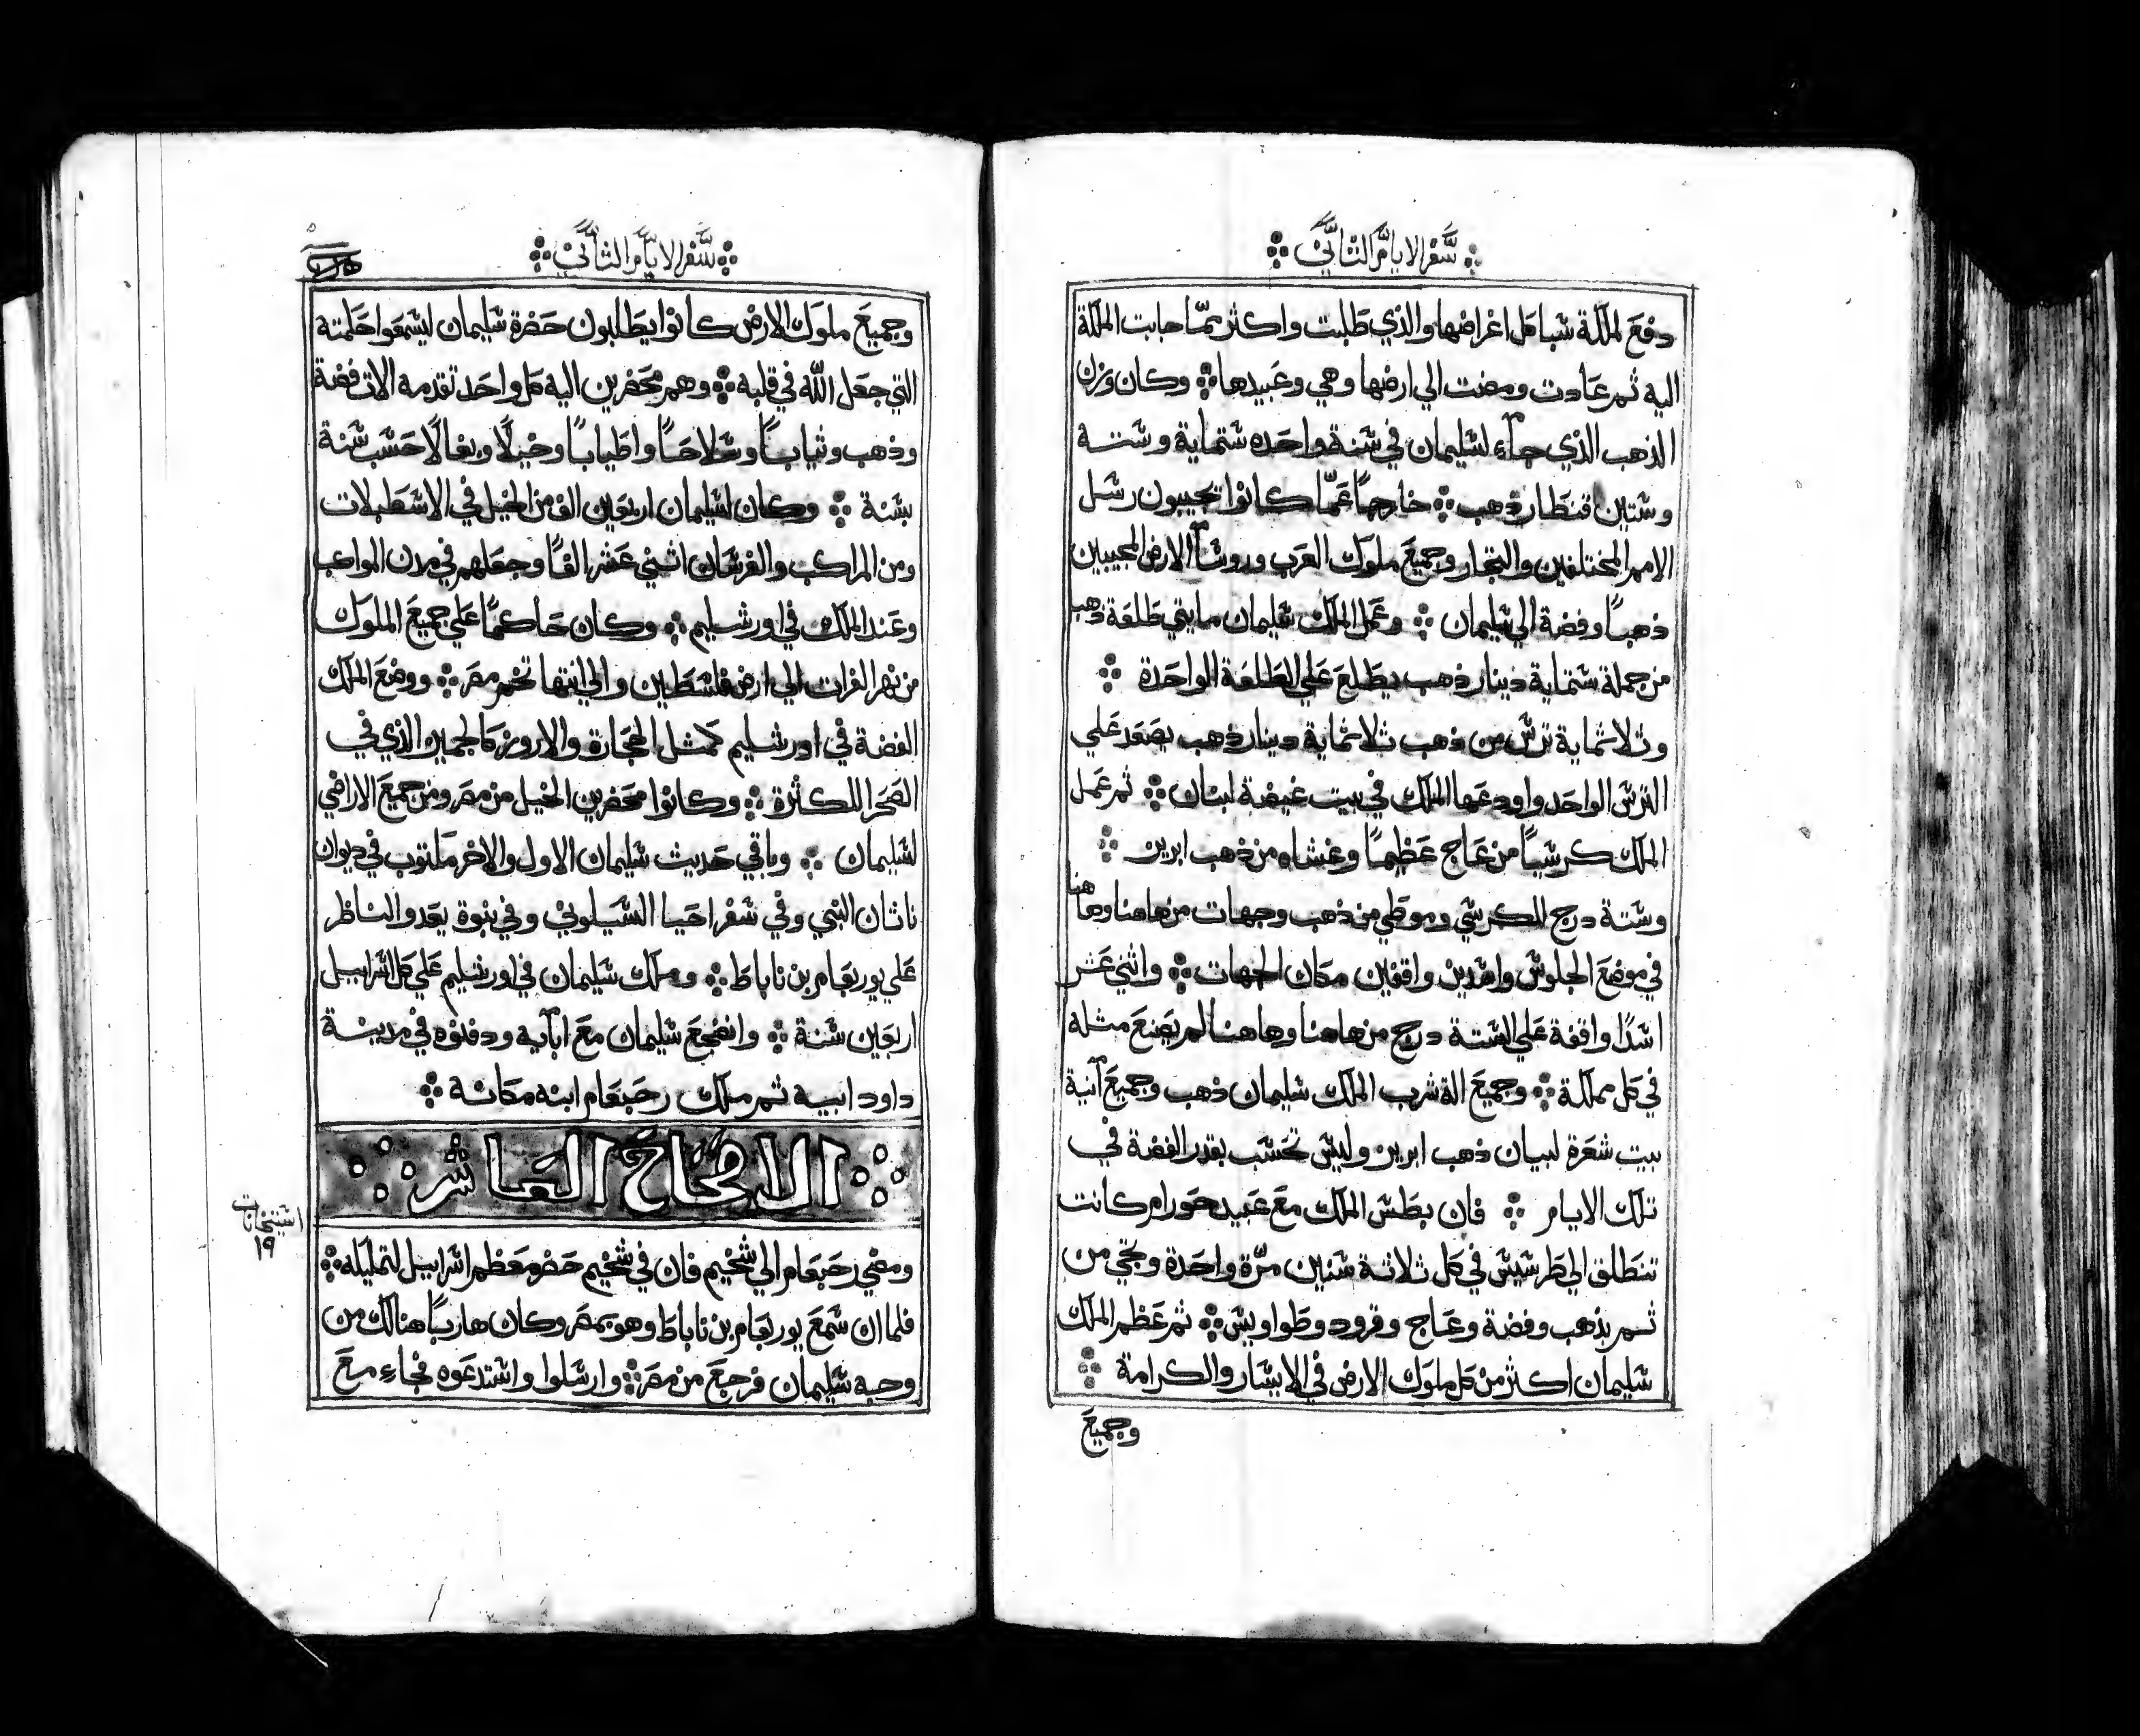 سفر الايام الثاني
دفع لملكة شبا كل اغراضها والذي طلبت واكثر عما جابت الملكة
اليه ثم عادت ومضت الي ارضها وهي وعبيدها ⁘ وكان وزن
الذهب الذي جاء لسليمان في سنة واحده ستماية وستة
وستين قنطار ذهب ⁘ خارجًا عمّا كانوا تجيبون رسل
الامم المختلفين والتجار وجميع ملوك العرب وروسآ الارض المجيبين
ذهبًا وفضة الي سليمان ⁘ وعمل الملك سليمان مايتي طلعة ذهب
من جملة ستماية دينار ذهب يطلع علي الطلعة الواحدة ⁘
وثلاثماية ترس من ذهب ثلاثماية دينار ذهب يصعد علي
الترس الواحد واودعها الملك في بيت غيضة لبنان ⁘ ثم عمل
الملك كرسيًا من عاج عظيمًا وغشاه من ذهب ابريز ⁘
وستة درج للكرسي وموطي من ذهب وجهات من هاهنا وهاهنا
في موضع الجلوس واسدين واقفين مكان الجهات ⁘ واثني عشر
اسدًا واقفة علي الستة درج من هاهنا وهاهنا لم يصنع مثله
في كل مملكة ⁘ وجميع الة شرب الملك سليمان ذهب وجميع آنية
بيت شعرة لبيان ذهب ابريز وليس تحسب بقدر الفضة في
تلك الايام ⁘ فان بطس الملك مع عبيد حورام كانت
تنطلق الي طرسيس في كل ثلاثة سنين مرّة واحدة وتجي من
ثم بذهب وفضة وعاج وقرود وطواويس ⁘ ثم عظم الملك
سليمان اكثر من كل ملوك الارض في الايسار والكرامة ⁘
وجميع
سفر الايام الثاني
وجميع ملوك الارض كانوا يطلبون حضرة سليمان ليسمعوا حكمته
التي جعل اللّه في قلبه ⁘ وهم محضرين اليه كل واحد تقدمه الات فضة
وذهب وثيابًا وسلاحًا واطيابًا وخيلًا وبغالًا حسب سنة
بسنة ⁘ وكان لسليمان اربعين الف من الخيل في الاسطبلات
ومن المراكب والفرسان اثني عشر الفًا وجعلهم في مدن المواكب
وعند الملك في اورشليم ⁘ وكان حاكمًا علي جميع الملوك
من نهر الفرات الي ارض فلسطين والي انتها تخم مصر ⁘ ووضع الملك
الفضة في اورشليم كمثل الحجارة والارورز كالجميز الذي في
الصحرا للكثرة ⁘ وكانوا محضرين الخيل من مصر ومن جميع الاراضي
لسليمان ⁘ وباقي حديث سليمان الاول والاخر مكتوب في ديوان
ناثان النبي وفي سفر احيا السيلوني وفي نبوة يعدو الناظر
علي يوربعام بن ناباط ⁘ وملك سليمان في اورشليم علي كل اسراييل
اربعين سنة ⁘ وانضجع سليمان مع ابآيه ودفنوه في مدينة
داود ابيه ثم ملك رحبعام ابنه مكانه ⁘
الاصحاح العاشر
استيخانات
١٩
ومضي رحبعام الي شخيم فان في شخيم حضر معظم اسراييل لتمليكه ⁘
فلما ان سمع يوربعام بن ناباط وهو بمصر وكان هاربًا هنالك من
وجه سليمان فرجع من مصر ⁘ وارسلوا واستدعوه فجاء مع